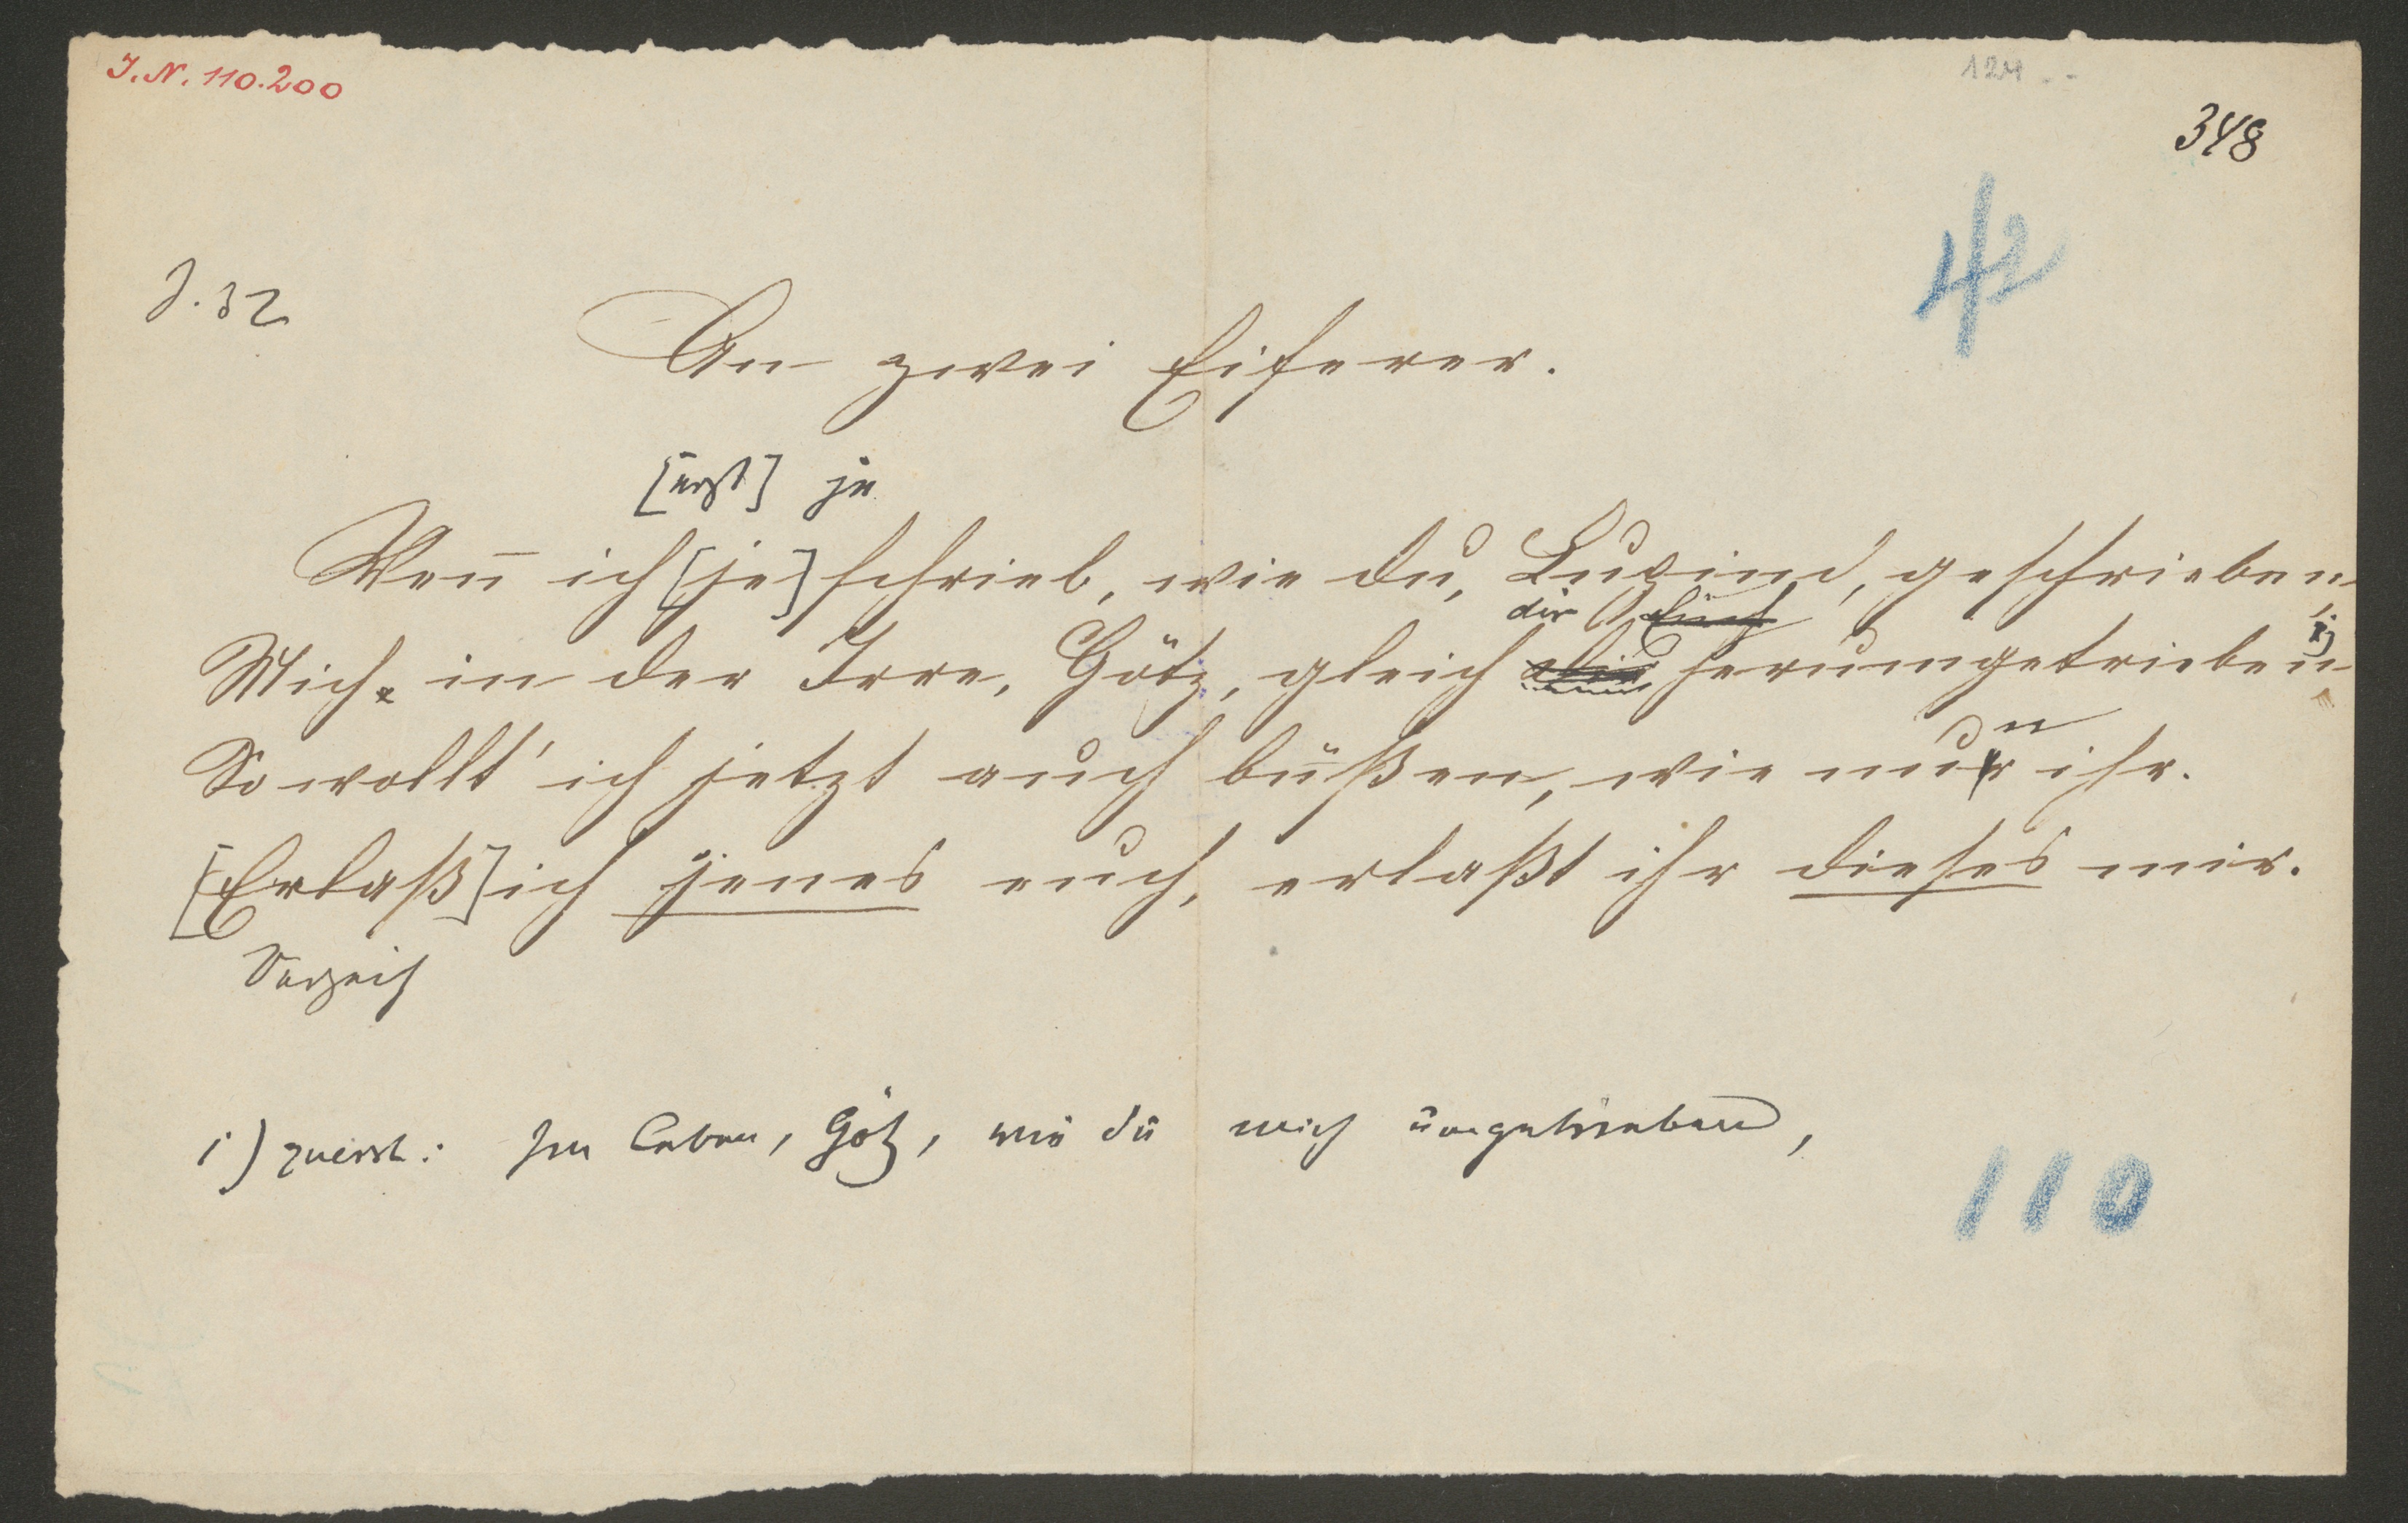 J. N. 110.200
124.--
348
42
J. 32
An zwei Eiferer.
[erst] je
Wenn ich [je] schrieb, wie du, Luzind, geschrieben
dir Euch
Mich in der Irre, Götz, gleich herumgetrieben 1)
n
So wollt' ich jetzt auch büßen, wie nur ihr.
[Erlaß] ich jenes euch, erlaßt ihr dieses mir.
Verzeih
1) zuerst: Im Leben, Götz, wie du mich umgetrieben,
110